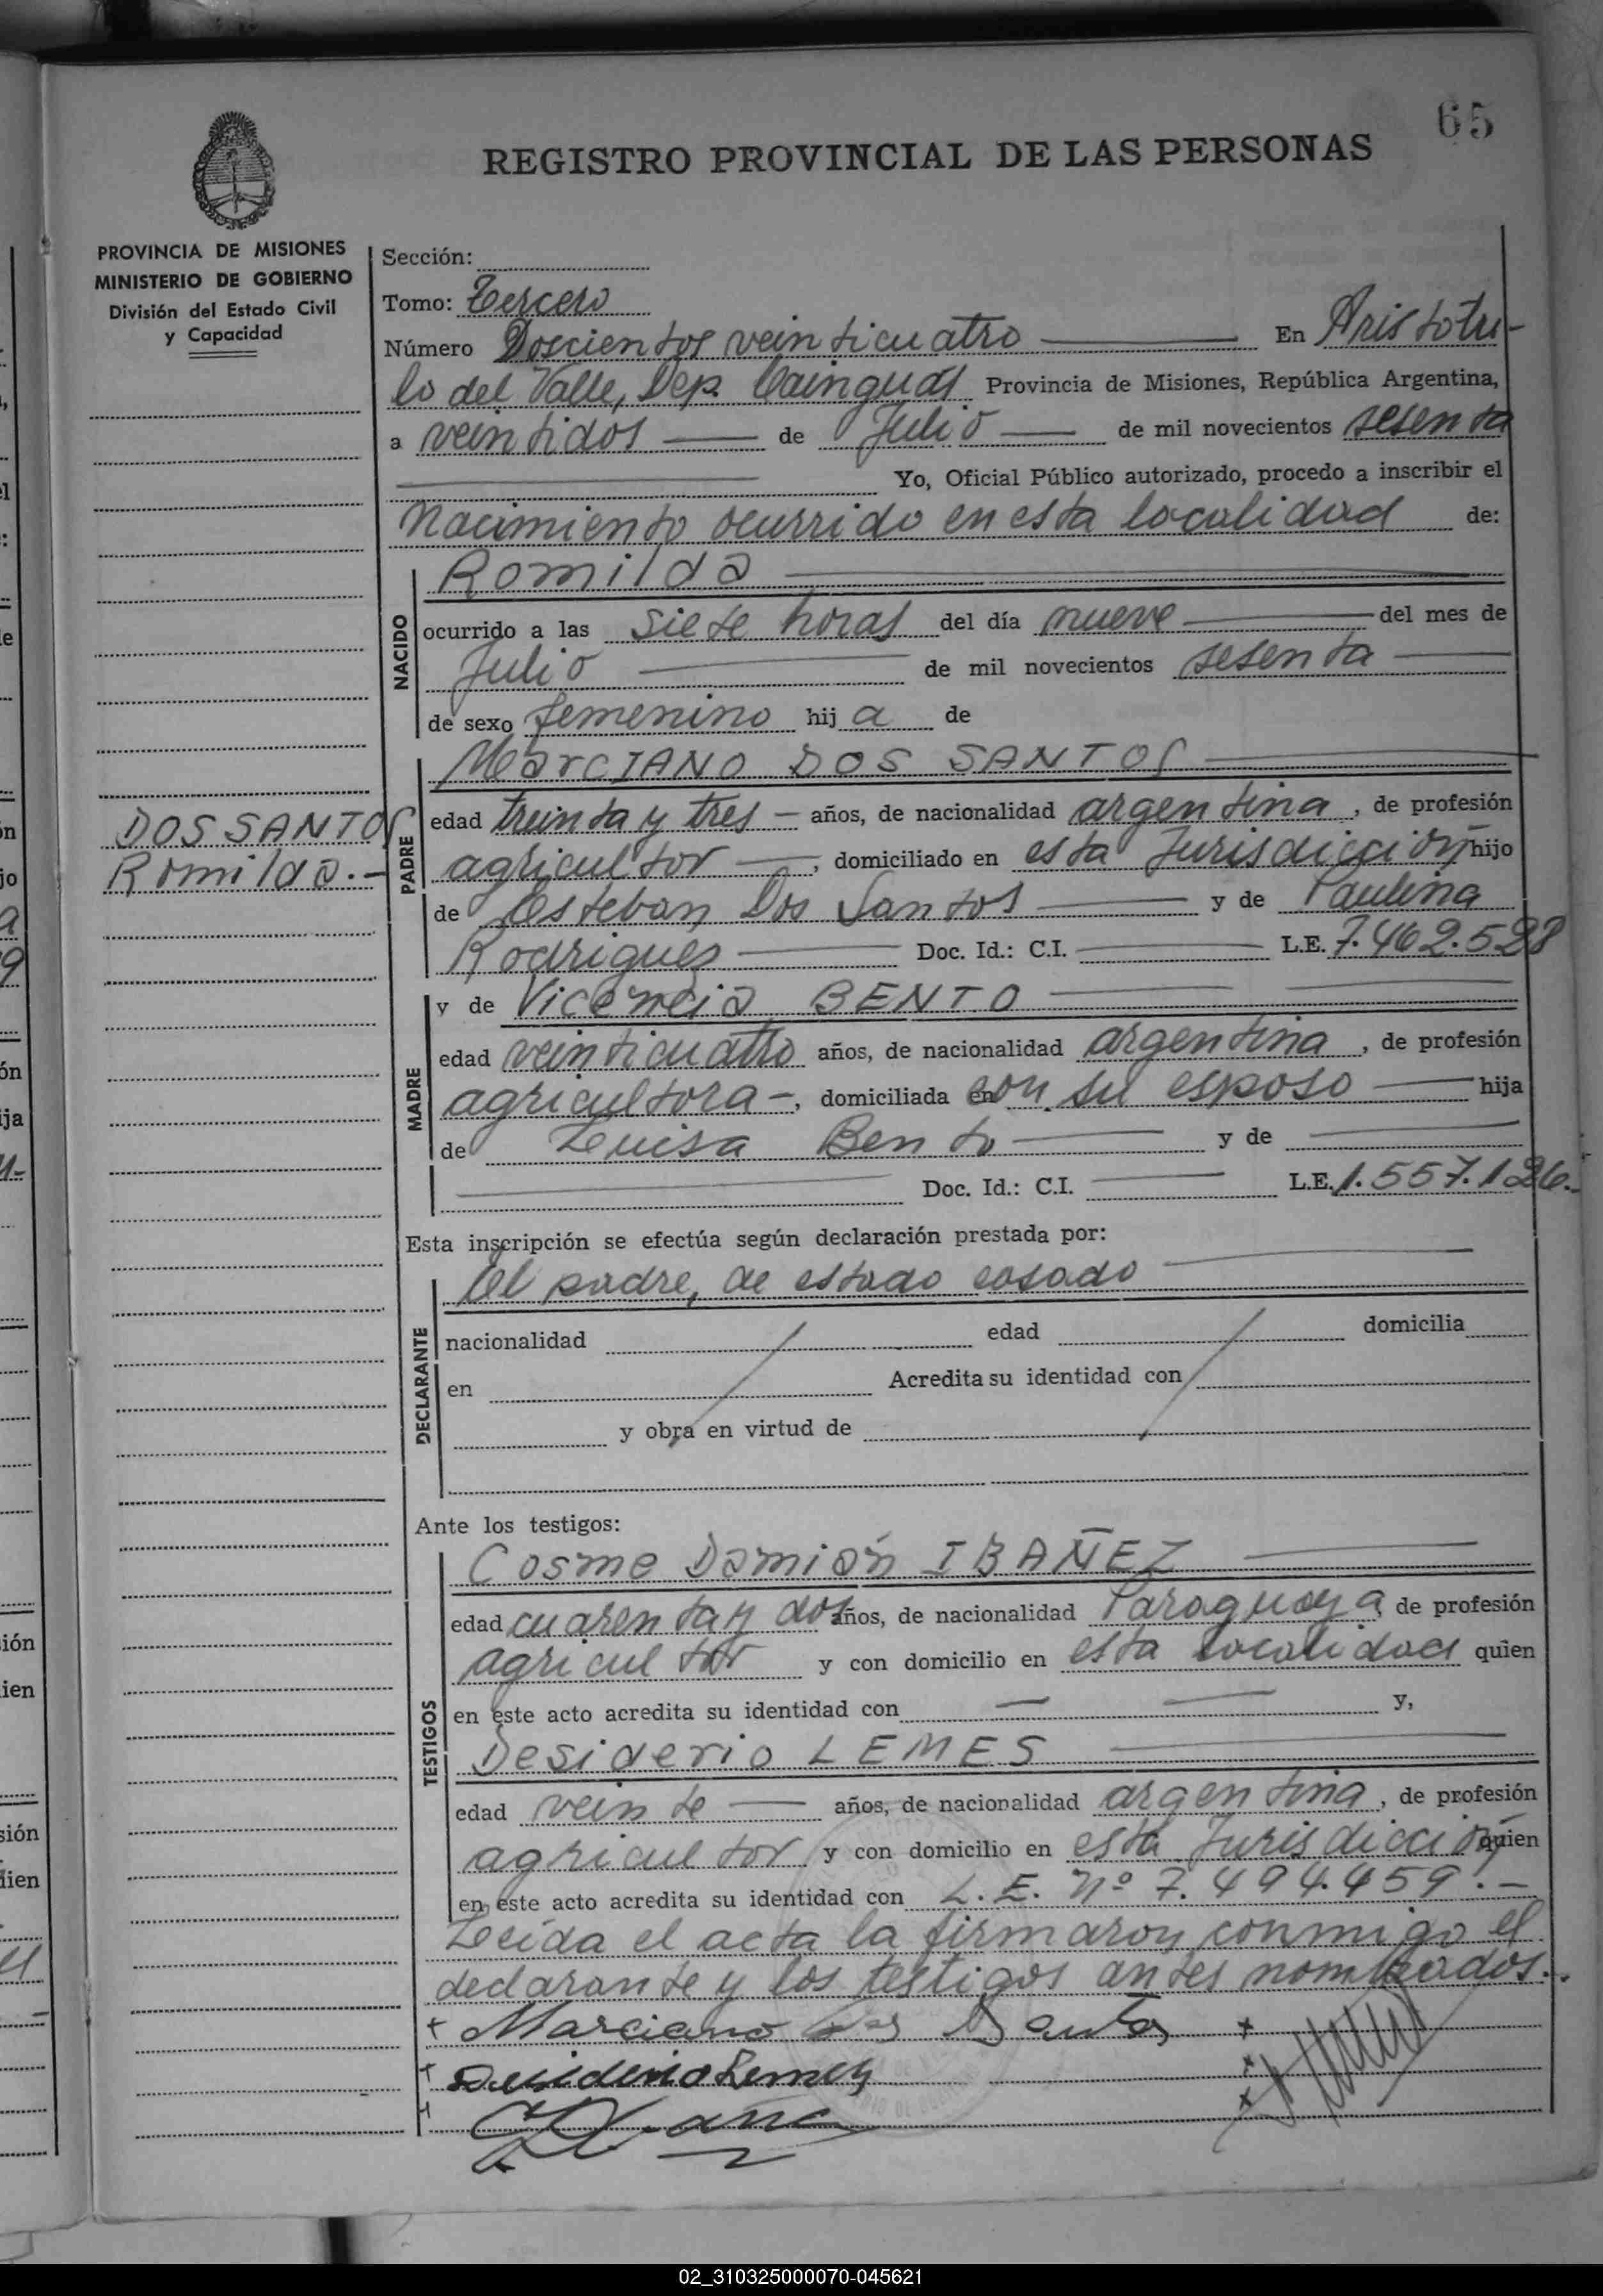 65
REGISTRO PROVINCIAL DE LAS PERSONAS
PROVINCIA DE MISIONES
MINISTERIO DE GOBIERNO
División del Estado Civil
y Capacidad
Sección:
Tomo: Tercero
Número Doscientos veinticuatro En Aristotu-
lo del Valle, Dep. Cainguás Provincia de Misiones, República Argentina,
a veintidos de Julio de mil novecientos sesenta
Yo, Oficial Público autorizado, procedo a inscribir el
Nacimiento ocurrido en esta localidad de:
NACIDO
Romilda
ocurrido a las siete horas del día nueve del mes de
Julio de mil novecientos sesenta
de sexo femenino hij a de
DOS SANTOS
Romilda.-
PADRE
Marciano DOS SANTOS
edad treinta y tres - años, de nacionalidad argentina, de profesión
agricultor, domiciliado en esta Jurisdicción hijo
de Esteban Dos Santos y de Paulina
Rodrigues Doc. Id.: C.I. L.E. 7.462.528
MADRE
y de Vicencia BENTO
edad veinticuatro años, de nacionalidad argentina, de profesión
agricultora-, domiciliada en con su esposo hija
de Luisa Bento y de
Doc. Id.: C.I. L.E. 1.557.126.-
Esta inscripción se efectúa según declaración prestada por:
DECLARANTE
El padre, de estado casado
nacionalidad edad domicilia
en Acredita su identidad con
y obra en virtud de
Ante los testigos:
TESTIGOS
Cosme Damián IBAÑEZ
edad cuarenta y dos años, de nacionalidad Paraguaya, de profesión
agricultor y con domicilio en esta localidad quien
en este acto acredita su identidad con y,
Desiderio LEMES
edad veinte años, de nacionalidad argentina, de profesión
agricultor y con domicilio en esta Jurisdicción quien
en este acto acredita su identidad con L.E. Nº 7.494.459.-
Leída el acta la firmaron conmigo el
declarante y los testigos antes nombrados.-
+ Marciano Dos Santos +
+ Desiderio Lemes
02_310325000070-045621